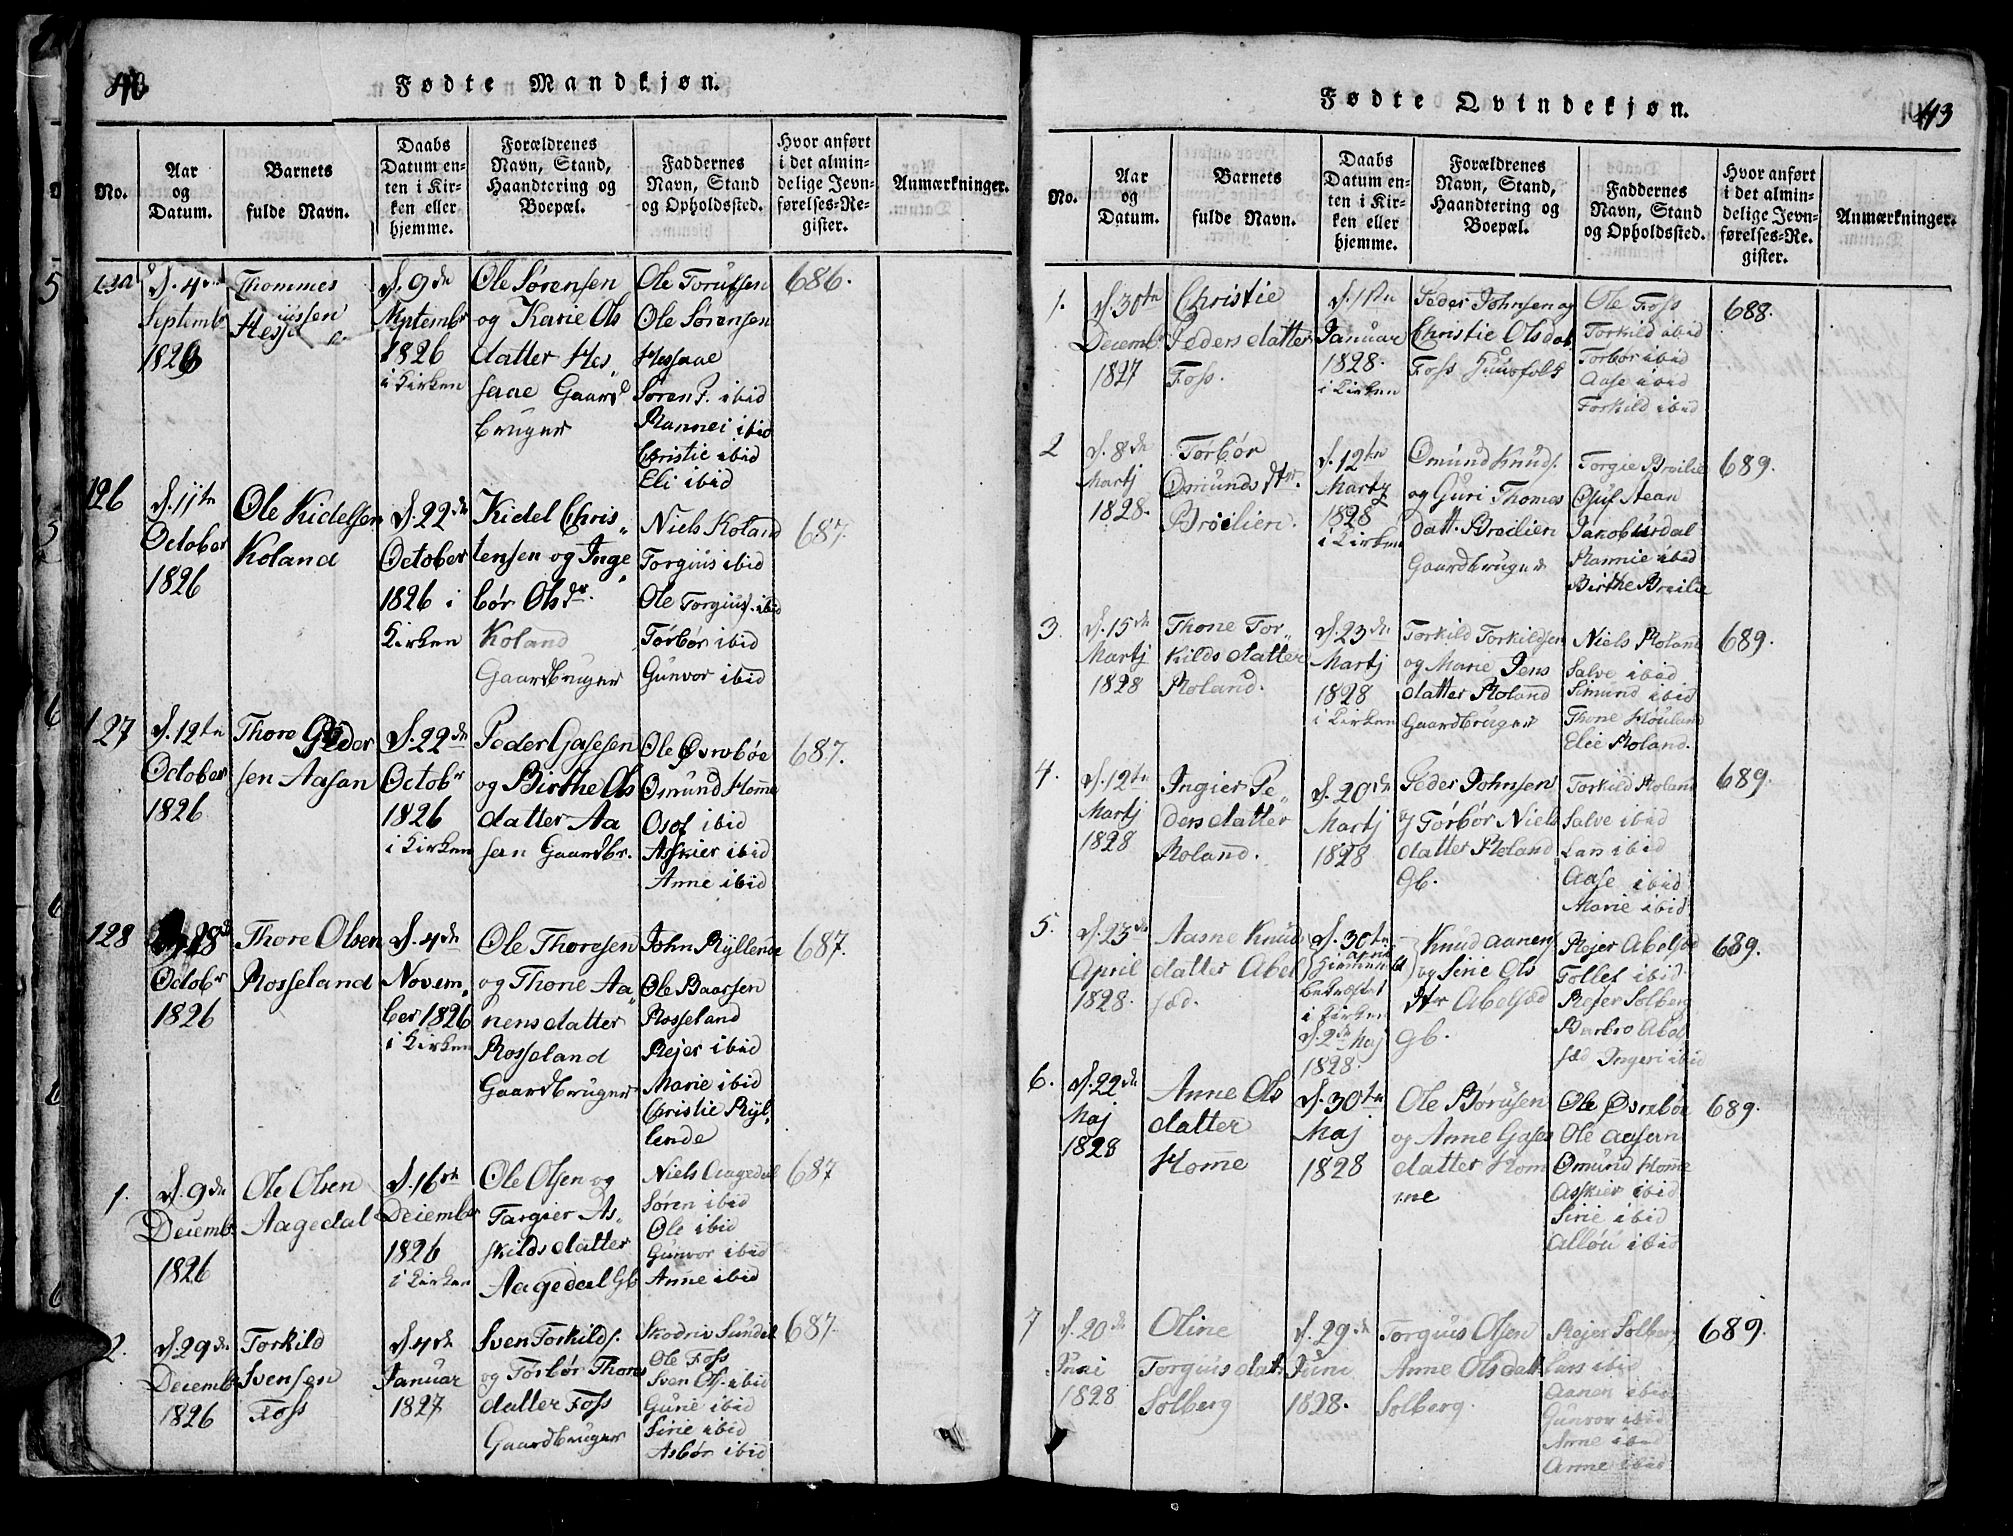 Fødte Mandkjøn.
No.
Aar
og
Datum.
Barnets
fulde Navn.
Daabs
Datum en-
ten i Kir-
ken eller
hjemme.
Forældrenes
Navn, Stand,
Haandtering og
Boepæl.
Faddernes
Navn, Stand
og Opholdssted.
Hvor anført
i det almin-
delige Jevn-
førelses-Re-
gister.
Anmærkninger.
d. 4de
Septembr
1826
Thommes
Hessaae
d. 9de
Septembr
1826
i Kirken
Ole Sørensen
og Karie Ols
datter Hes„
saae Gaard
bruger
Ole Sørensen
Hessaae
Søren P. ibid
Rannei ibid
Christie ibid
Eli ibid
686.
126
d. 11tn
October
1826
Ole Kidelsen
Koland
d. 22de
October
1826 i
Kirken
Kidel Chris„
tensen og Inge„
bør Olsdr.
Koland
Gaardbruger
Niels Koland
Torgius ibid
Ole Torgiusf. ibid
Tørbør ibid
Gunvor ibid
687.
127
d. 12tn
October
1826
Thore Peder
sen Aasan
d. 22de
Octobr
1826
i Kirken
Peder Gasesen
og Birthe Ols
datter Aa
sen Gaardbr.
Ole Øvrebøe
Osmund Homme
Osof ibid
Asskier ibid
Anne ibid
687.
128
28d
Octobr
1826
Thore Olsen
Rosseland
d. 4de
Novem„
ber 1826
i Kirken
Ole Thoresen
og Thone Aa„
nensdatter
Rosseland
Gaardbruger
John Ryllende
Ole Baarsen
Rosseland
Rejer ibid
Marie ibid
Christie Ryl„
lende
687.
1.
d. 9de
Decembr
1826
Ole Olsen
Aagedal
d. 16de
Decembr
1826
i Kirken
Ole Olsen og
Targier As„
skildsdatter
Aagedal Gb
Niels Aagedal
Søren ibid
Ole ibid
Gunvor ibid
Anne ibid
687
2.
d. 29de
Decembr
1826
Torkild
Svensen
Foss
d. 4de
Januar
1827
Sven Torkilds.
og Tørbør Thores
datter Foss
Gaardbruger
Skodriv Sundal
Ole Foss
Sven Ols. ibid
Gurie ibid
Sirie ibid
Asbør ibid
687.
Fødte Qvindekjøn.
143
No.
Aar
og
Datum.
Barnets
fulde Navn.
Daabs
Datum en-
ten i Kir-
ken eller
hjemme.
Forældrenes
Navn, Stand,
Haandtering og
Boepæl.
Faddernes
Navn, Stand
og Opholdssted.
Hvor anført
i det almin-
delige Jevn-
førelses-Re-
gister.
Anmærkninger.
1.
d. 30tn
Decembr
1827
Christie
Pedersdatter
Foss.
d. 11tn
Januar
1828.
i Kirken
Peder Johnsen og
Christie Olsdat
Foss Huusfolk
Ole Foss
Torkild ibid
Torbør ibid
Aase ibid
Torkild ibid
688.
2
d. 8de
Martj
1828.
Tørbør
Osmundsdtr.
Breilien.
d. 12tn
Martj
1828
i Kirken
Omund Knuds.
og Guri Thomes
datt. Breilien
Gaardbruger
Torgie Breilie
Osuf Stean
Jakob Urdal
Rannie ibid
Birthe Breilie
689.
3.
d. 15de
Martj
1828
Thone Tor„
kildsdatter
Roland.
d. 23de
Martj
1828
i Kirken
Torkild Torkildsen
og Marie Jens
datter Roland
Gaardbruger
Niels Roland
Salve ibid
Simund ibid
Thone Houland
Elie Roland.
689.
4.
d. 12tn
Martj
1828
Ingier Pe„
dersdatter
Roland.
d. 20de
Martj
1828
Peder Johnsen
og Tørbør Niels
datter Roland
Gb.
Torkild Roland
Salve ibid
Lars ibid
Aase ibid
Marie ibid
689.
5.
d. 23de
April
1828.
Aasne Knuds
datter Abel
sæd.
d. 30tn
April
bekræftet
i Kirken
d. 2de Maj
1828.
Knud Aanens
og Sirie Ols
dtr Abelsæd
Gb.
Rejer Abelsæd
Tollef ibid
Rejer Solberg
Barbro Abel
sæd Ingeri ibid
689.
6.
d. 22de
Maj
1828
Anne Ols
datter
Homme
d. 30tn
Maj
1828
Ole Børusen
og Anne Gases
datter Hom
me
Ole Øvrebøe
Ole Aasen
Omund Homme
Asskier ibid
Sirie ibid
Alløu ibid
689.
7
d. 20de
Juni
1828
Oline
Torgiusdatt.
Solberg
d. 29de
Juni
1828.
Torgius Olsen
Anne Olsdatt
Solberg.
Rejer Solberg
Lars ibid
Aanen ibid
Gunvor ibid
Anne ibid
Anne ibid
689.